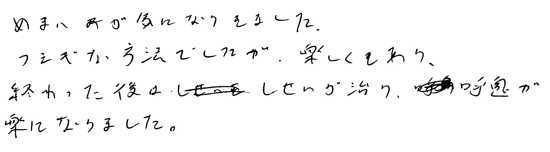 めまいが気になりきました。
フシギな方法でしたが、楽しくもあり、
終わった後はしせいが治り、呼吸が
楽になりました。